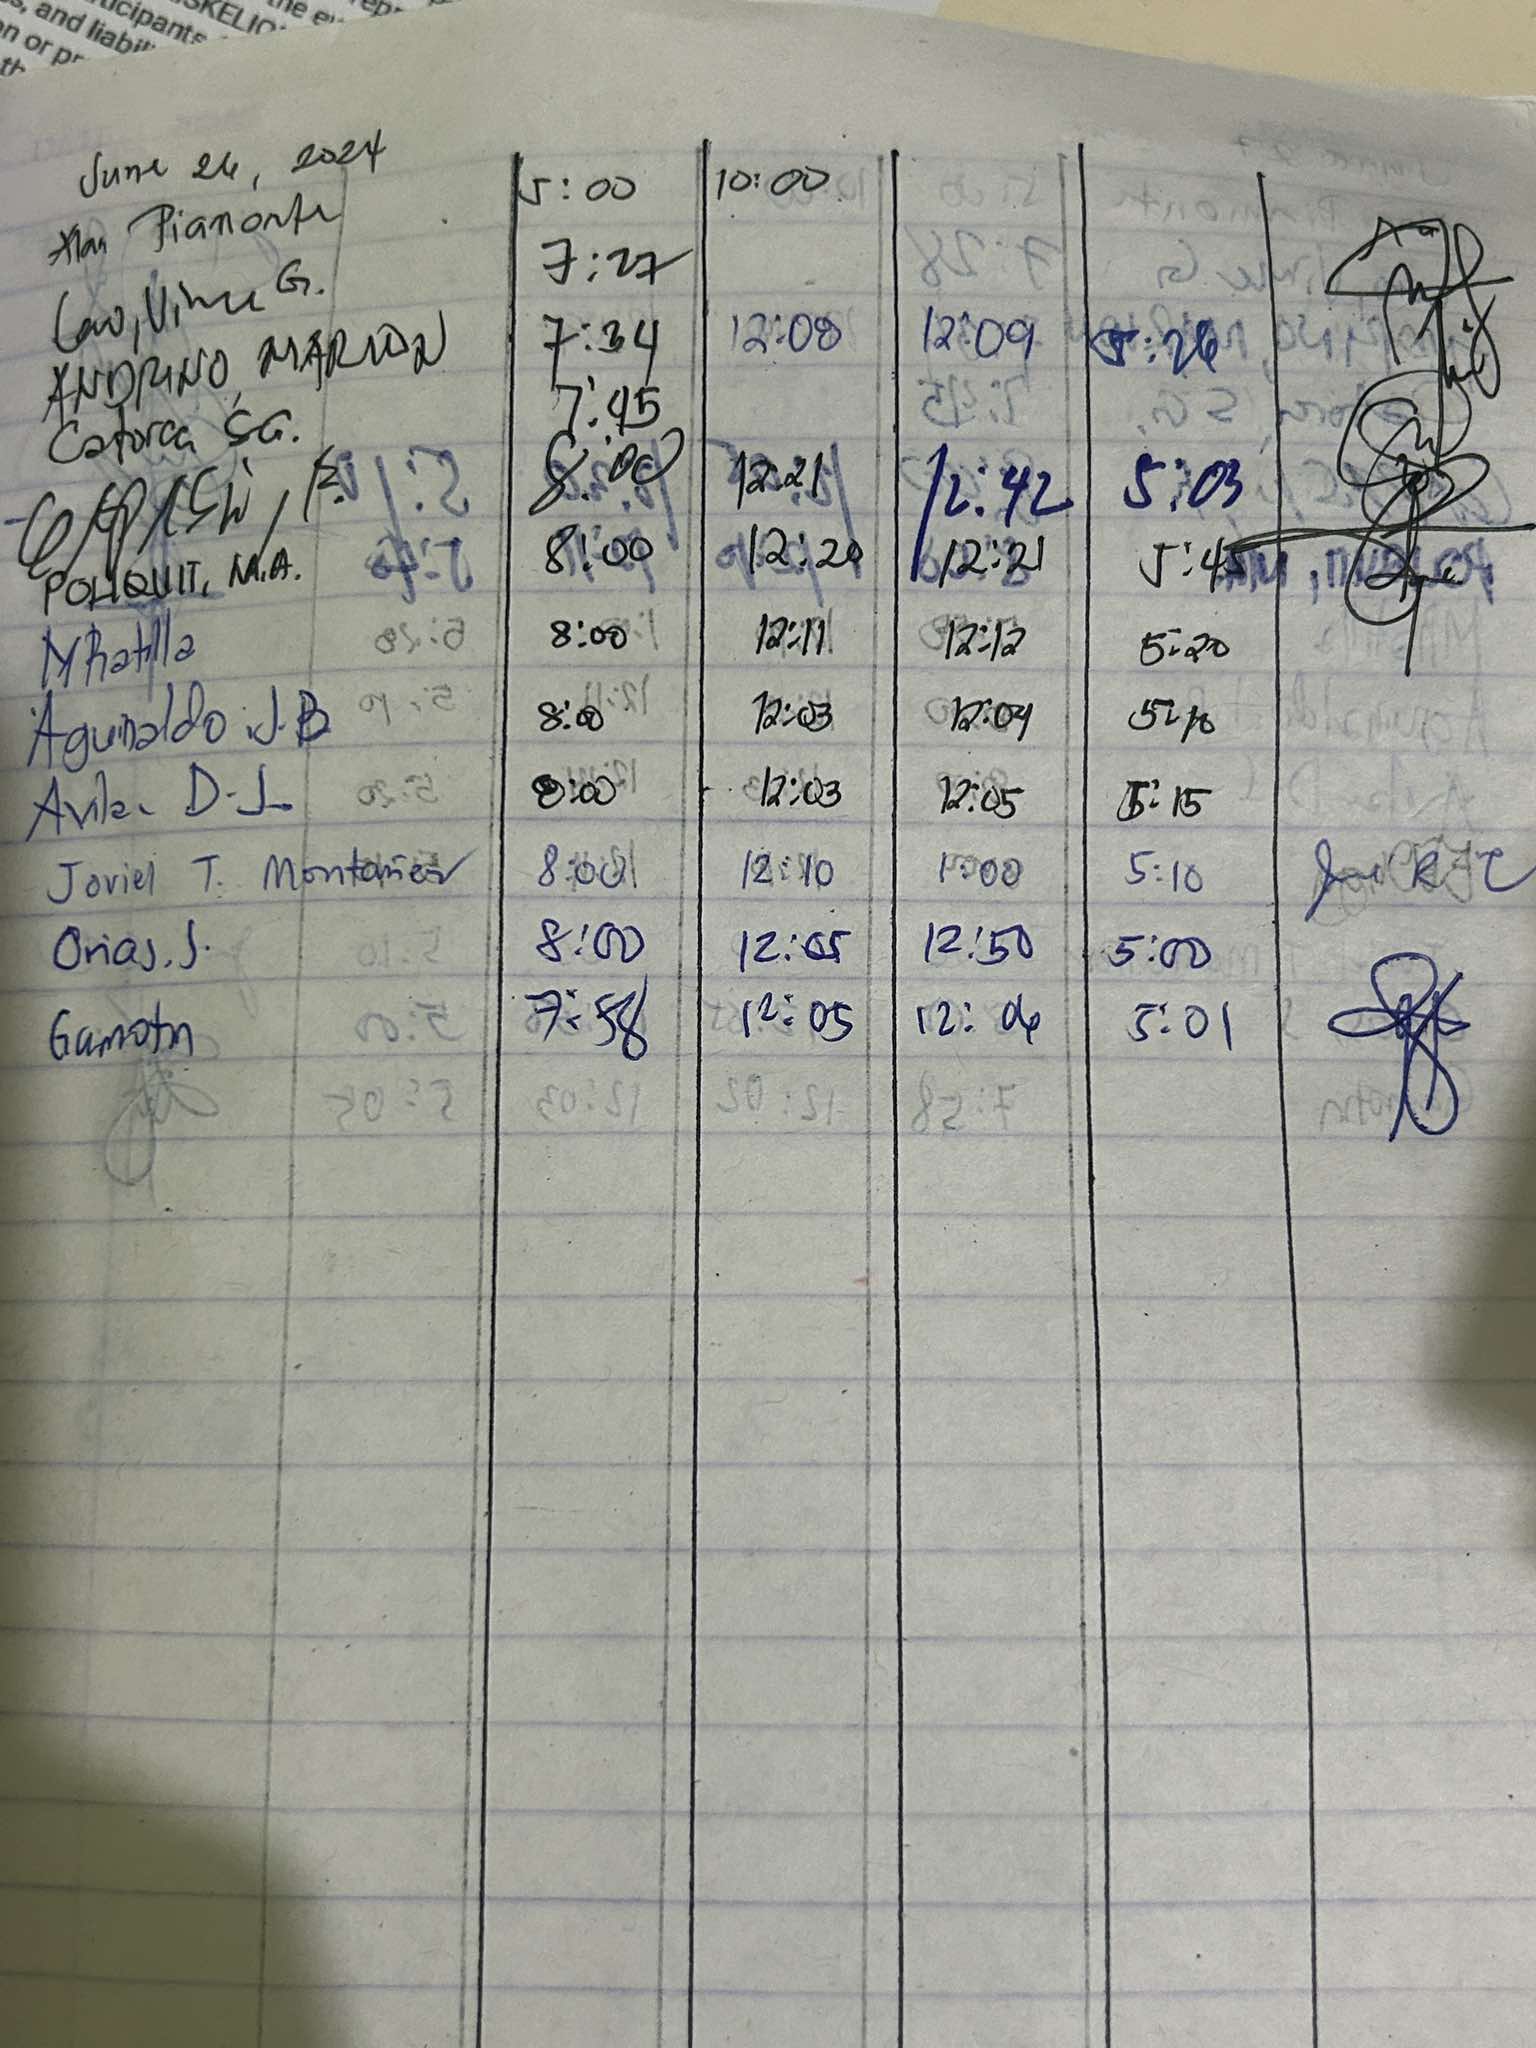 rep
the ev
ticipants
SKELIO
s, and liabili
n or pr
th
June 26, 2024
Alan Piamonte 5:00 10:00
Vince G. 7:27
ANDRINO, MARION 7:34 12:08 12:09 5:26
Catorca SG. 7:45
8:00 12:21 12:42 5:03
POLIQUIT, M.A. 8:00 12:20 12:21 5:45
MRatilla 8:00 12:11 12:12 5:20
Aguinaldo J.B 8:00 12:03 12:04 5:10
Avila D.J. 8:00 12:03 12:05 5:15
Joviel T. 8:00 12:10 1:00 5:10
Orias, J. 8:00 12:05 12:50 5:00
Gamotn 7:58 12:05 12:06 5:01